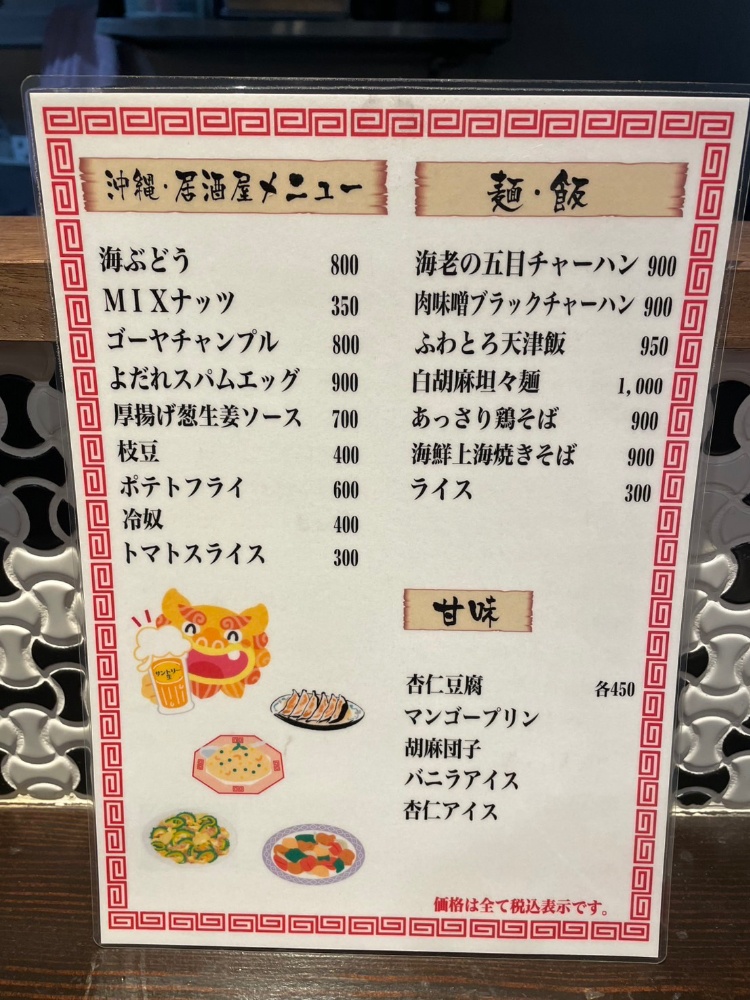 沖縄・居酒屋メニュー
海ぶどう 800
MIXナッツ 350
ゴーヤチャンプル 800
よだれスパムエッグ 900
厚揚げ葱生姜ソース 700
枝豆 400
ポテトフライ 600
冷奴 400
トマトスライス 300
麺・飯
海老の五目チャーハン 900
肉味噌ブラックチャーハン 900
ふわとろ天津飯 950
白胡麻坦々麺 1,000
あっさり鶏そば 900
海鮮上海焼きそば 900
ライス 300
甘味
杏仁豆腐 各450
マンゴープリン
胡麻団子
バニラアイス
杏仁アイス
サントリー
価格は全て税込表示です。